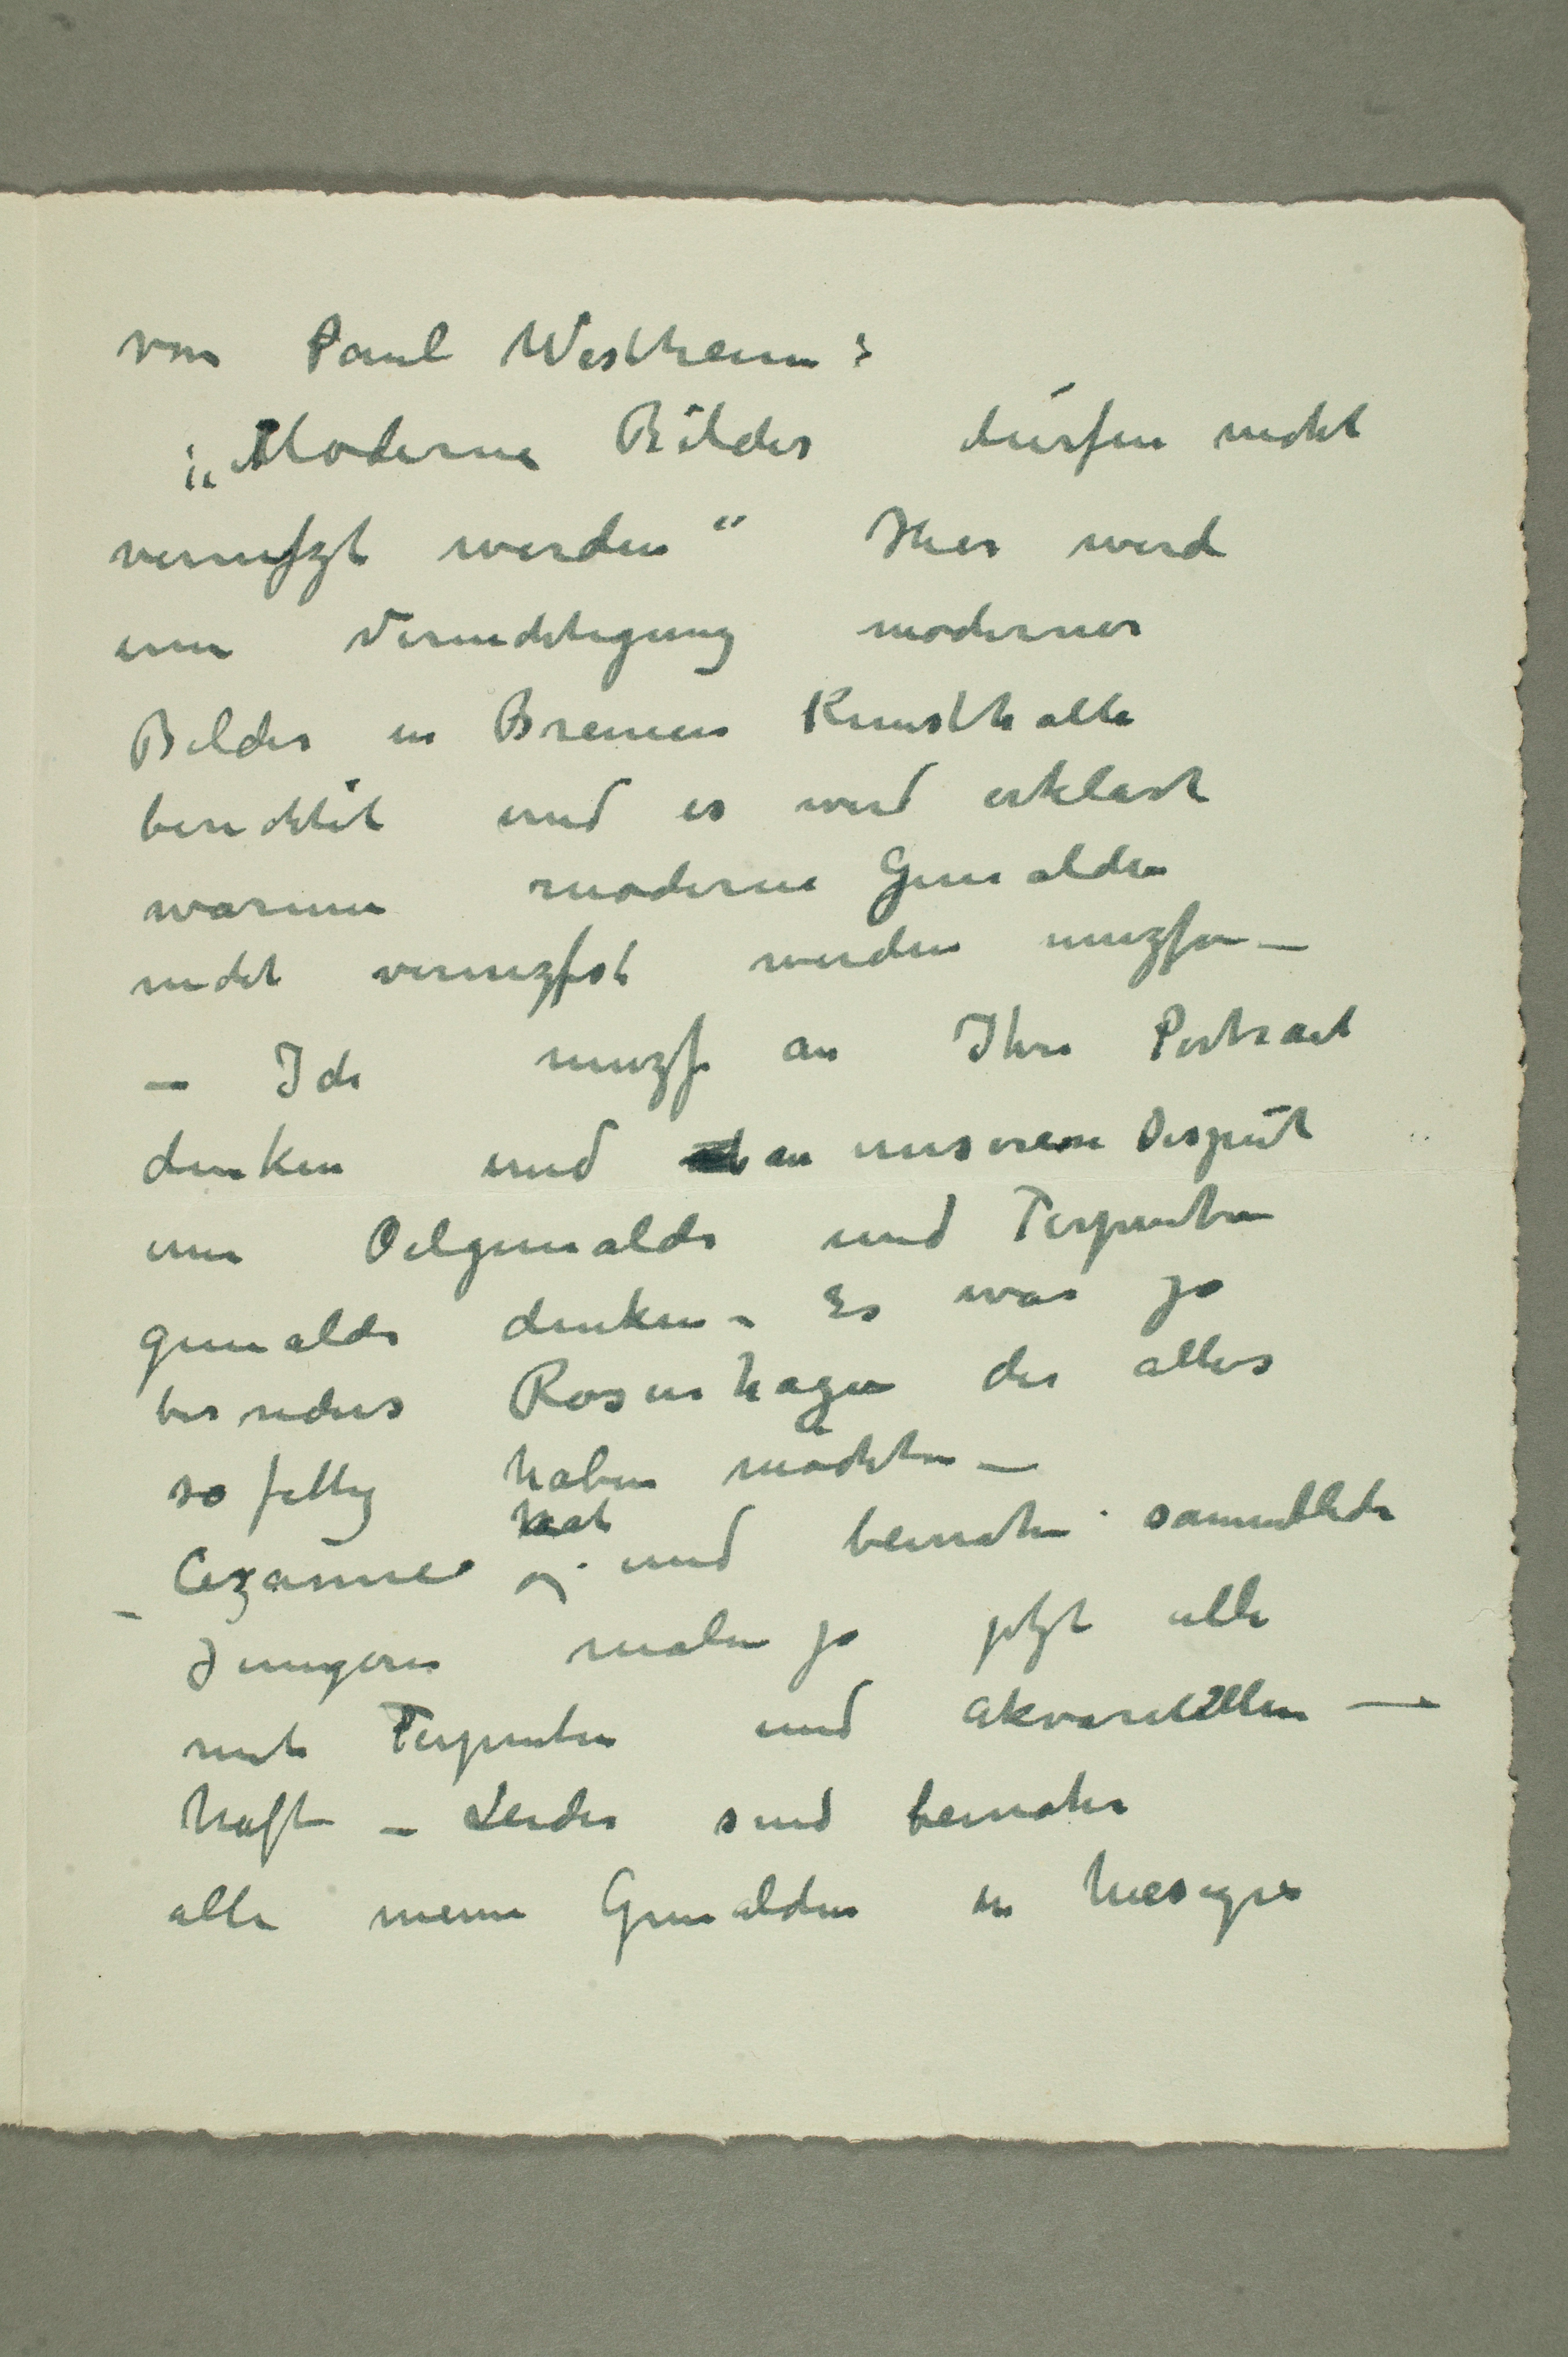 von Paul Westheim:
„Moderne Bilder dürfen nicht
vernifzt werden“ Hier wird
eine Vernichtigung moderner
Bilder in Bremen Kunsthalle
berichtet und es wird erklart
warum moderne Gemalden
nicht vernizfst werden muzfen –
– Ich muzs an Ihre Portrait
denken und an unserem Disput
um Oelgemalde und Terpentin
gemalde denken – Es war ja
besonders Rosenhagen der alles
so fettig haben mochte –
– Cezanne hat og und beinahe sammtliche
Jungern malen ja jetzt alle
mit Terpentin und akvarellen –
haft – Leider sind beinahe
alle meine Gemalden in hiesiges